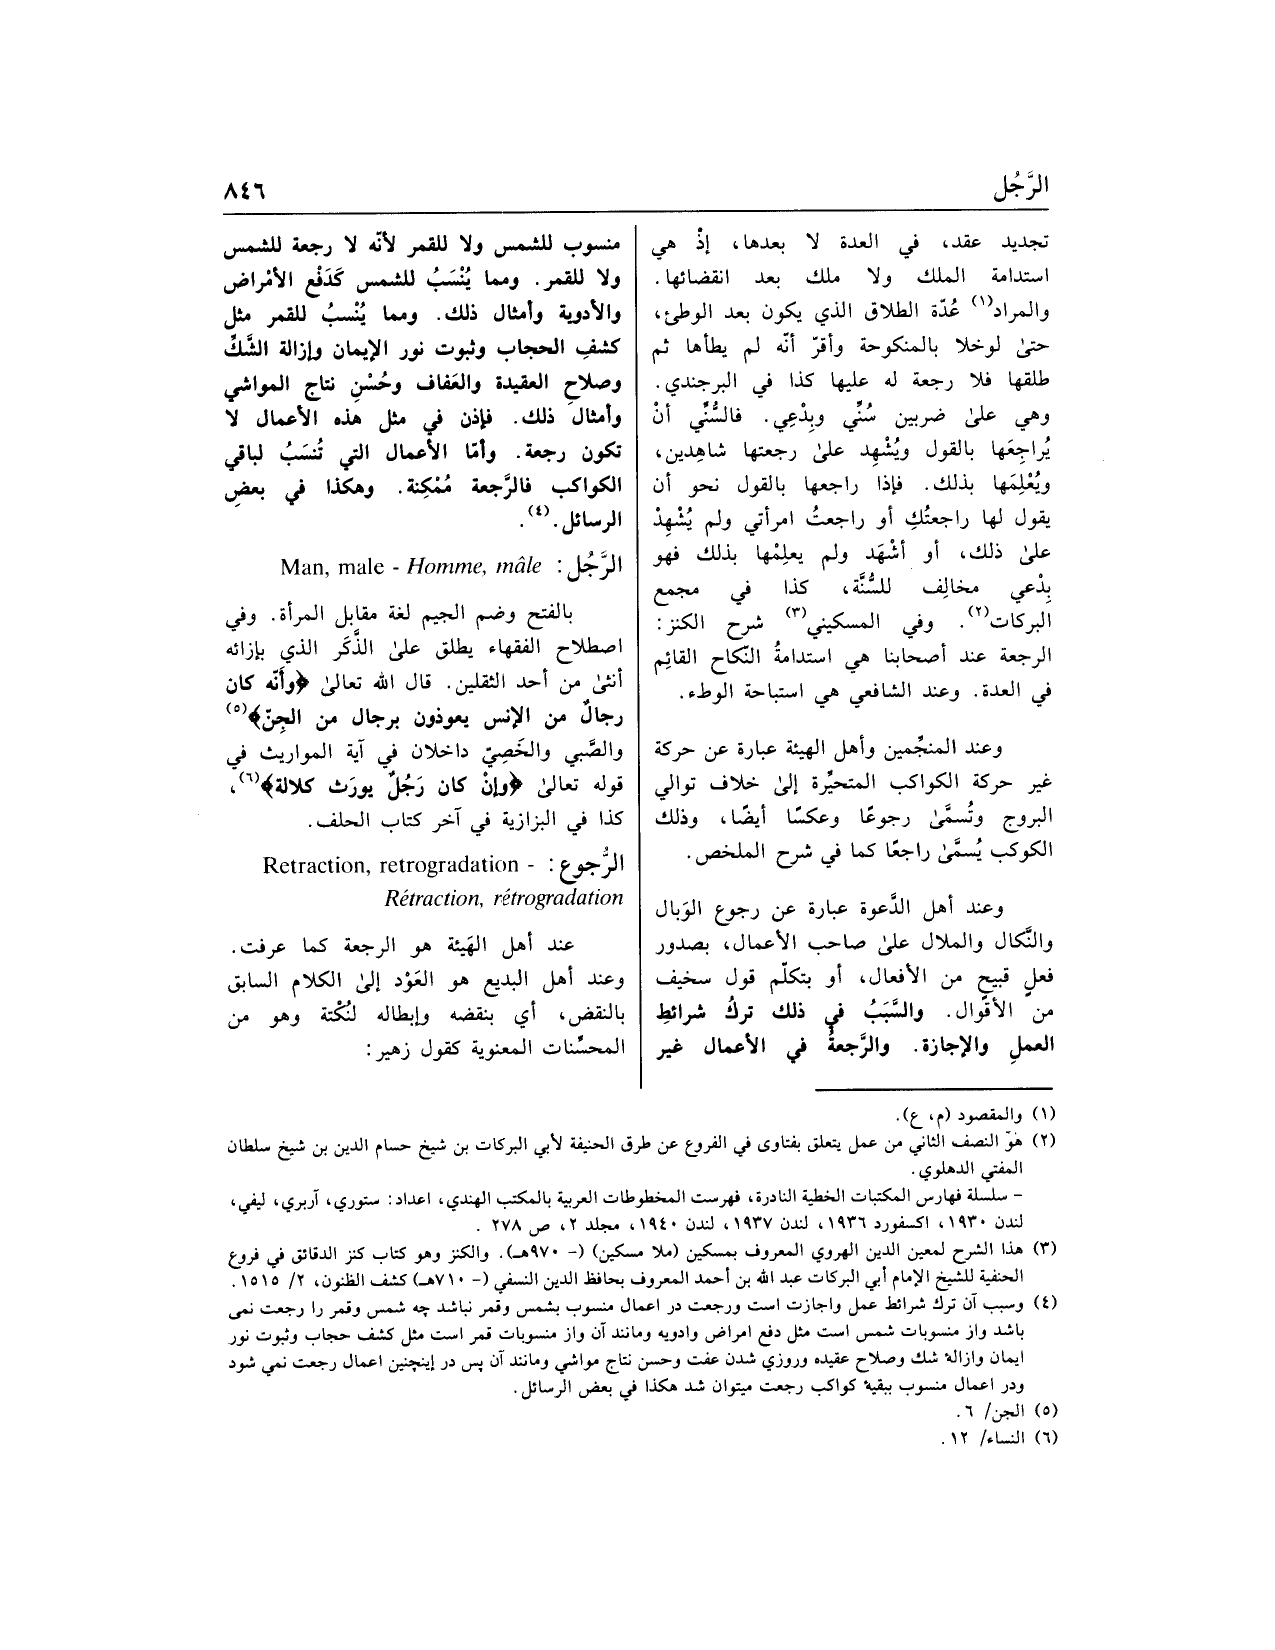 الرَّجُل
٨٤٦
تجديد عقد، في العدة لا بعدها، إذْ هي
استدامة الملك ولا ملك بعد انقضائها.
والمراد(١) عُدّة الطلاق الذي يكون بعد الوطئ،
حتىٰ لوخلا بالمنكوحة وأقرّ أنّه لم يطأها ثم
طلقها فلا رجعة له عليها كذا في البرجندي.
وهي علىٰ ضربين سُنِّي وبِدْعِي. فالسُّنِّي أنْ
يُراجِعَها بالقول ويُشْهِد علىٰ رجعتها شاهِدين،
ويُعْلِمَها بذلك. فإذا راجعها بالقول نحو أن
يقول لها راجعتُكِ أو راجعتُ امرأتي ولم يُشْهِدْ
علىٰ ذلك، أو أشْهَد ولم يعلِمْها بذلك فهو
بِدْعي مخالِف للسُّنَّة، كذا في مجمع
البركات(٢). وفي المسكيني(٣) شرح الكنز:
الرجعة عند أصحابنا هي استدامةُ النّكاح القائِم
في العدة. وعند الشافعي هي استباحة الوطء.
وعند المنجِّمين وأهل الهيئة عبارة عن حركة
غير حركة الكواكب المتحيِّرة إلىٰ خلاف توالي
البروج وتُسمَّىٰ رجوعًا وعكسًا أيضًا، وذلك
الكوكب يُسمَّىٰ راجعًا كما في شرح الملخص.
وعند أهل الدَّعوة عبارة عن رجوع الوَبال
والنَّكال والملال علىٰ صاحب الأعمال، بصدور
فعلٍ قبيح من الأفعال، أو بتكلّم قول سخيف
من الأقوال. والسَّبَبُ في ذلك تركُ شرائطِ
العملِ والإجازة. والرَّجعةُ في الأعمال غير
منسوب للشمس ولا للقمر لأنّه لا رجعة للشمس
ولا للقمر. ومما يُنْسَبُ للشمس كَدَفْع الأمْراض
والأدوية وأمثال ذلك. ومما يُنْسبُ للقمر مثل
كشف الحجاب وثبوت نور الإيمان وإزالة الشَّكِّ
وصلاحِ العقيدة والعَفاف وحُسْنِ نتاج المواشي
وأمثال ذلك. فإذن في مثل هذه الأعمال لا
تكون رجعة. وأمّا الأعمال التي تُنسَبُ لباقي
الكواكب فالرَّجعة مُمْكِنة. وهكذا في بعضِ
الرسائل.(٤).
الرَّجُل: Man, male - Homme, mâle
بالفتح وضم الجيم لغة مقابل المرأة. وفي
اصطلاح الفقهاء يطلق علىٰ الذَّكَر الذي بإزائه
أنثىٰ من أحد الثقلين. قال الله تعالىٰ ﴿وأنّه كان
رجالٌ من الإنس يعوذون برجال من الجِنّ﴾(٥)
والصَّبي والخَصِيّ داخلان في آية المواريث في
قوله تعالىٰ ﴿وإنْ كان رَجُلٌ يورَث كلالة﴾(٦)،
كذا في البزازية في آخر كتاب الحلف.
الرُّجوع: Retraction, retrogradation -
Rétraction, rétrogradation
عند أهل الهَيئة هو الرجعة كما عرفت.
وعند أهل البديع هو العَوْد إلىٰ الكلام السابق
بالنقض، أي بنقضه وإبطاله لنُكْتة وهو من
المحسِّنات المعنوية كقول زهير:
(١) والمقصود (م، ع).
(٢) هو النصف الثاني من عمل يتعلق بفتاوى في الفروع عن طرق الحنيفة لأبي البركات بن شيخ حسام الدين بن شيخ سلطان
المفتي الدهلوي.
– سلسلة فهارس المكتبات الخطية النادرة، فهرست المخطوطات العربية بالمكتب الهندي، اعداد: ستوري، آربري، ليفي،
لندن ١٩٣٠، اكسفورد ١٩٣٦، لندن ١٩٣٧، لندن ١٩٤٠، مجلد ٢، ص ٢٧٨.
(٣) هذا الشرح لمعين الدين الهروي المعروف بمسكين (ملا مسكين) (- ٩٧٠هـ). والكنز وهو كتاب كنز الدقائق في فروع
الحنفية للشيخ الإمام أبي البركات عبد الله بن أحمد المعروف بحافظ الدين النسفي (- ٧١٠هـ) كشف الظنون، ٢/ ١٥١٥.
(٤) وسبب آن ترك شرائط عمل واجازت است ورجعت در اعمال منسوب بشمس وقمر نباشد چه شمس وقمر را رجعت نمى
باشد واز منسوبات شمس است مثل دفع امراض وادويه ومانند آن واز منسوبات قمر است مثل كشف حجاب وثبوت نور
ايمان وازالهٔ شك وصلاح عقيده وروزي شدن عفت وحسن نتاج مواشي ومانند آن پس در اينچنين اعمال رجعت نمي شود
ودر اعمال منسوب ببقيهٔ كواكب رجعت ميتوان شد هكذا في بعض الرسائل.
(٥) الجن/ ٦.
(٦) النساء/ ١٢.